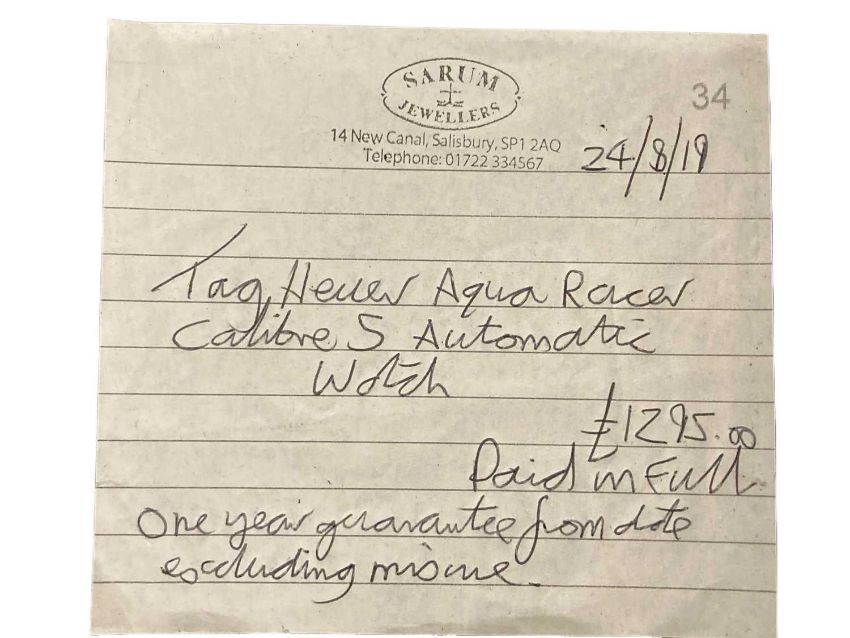 SARUM
JEWELLERS
34
14 New Canal, Salisbury, SP1 2AQ
Telephone: 01722 334567
24/8/19
Tag Heuer Aqua Racer
Calibre 5 Automatic
Watch
£1295.00
Paid in Full
One year guarantee from date
excluding misuse.